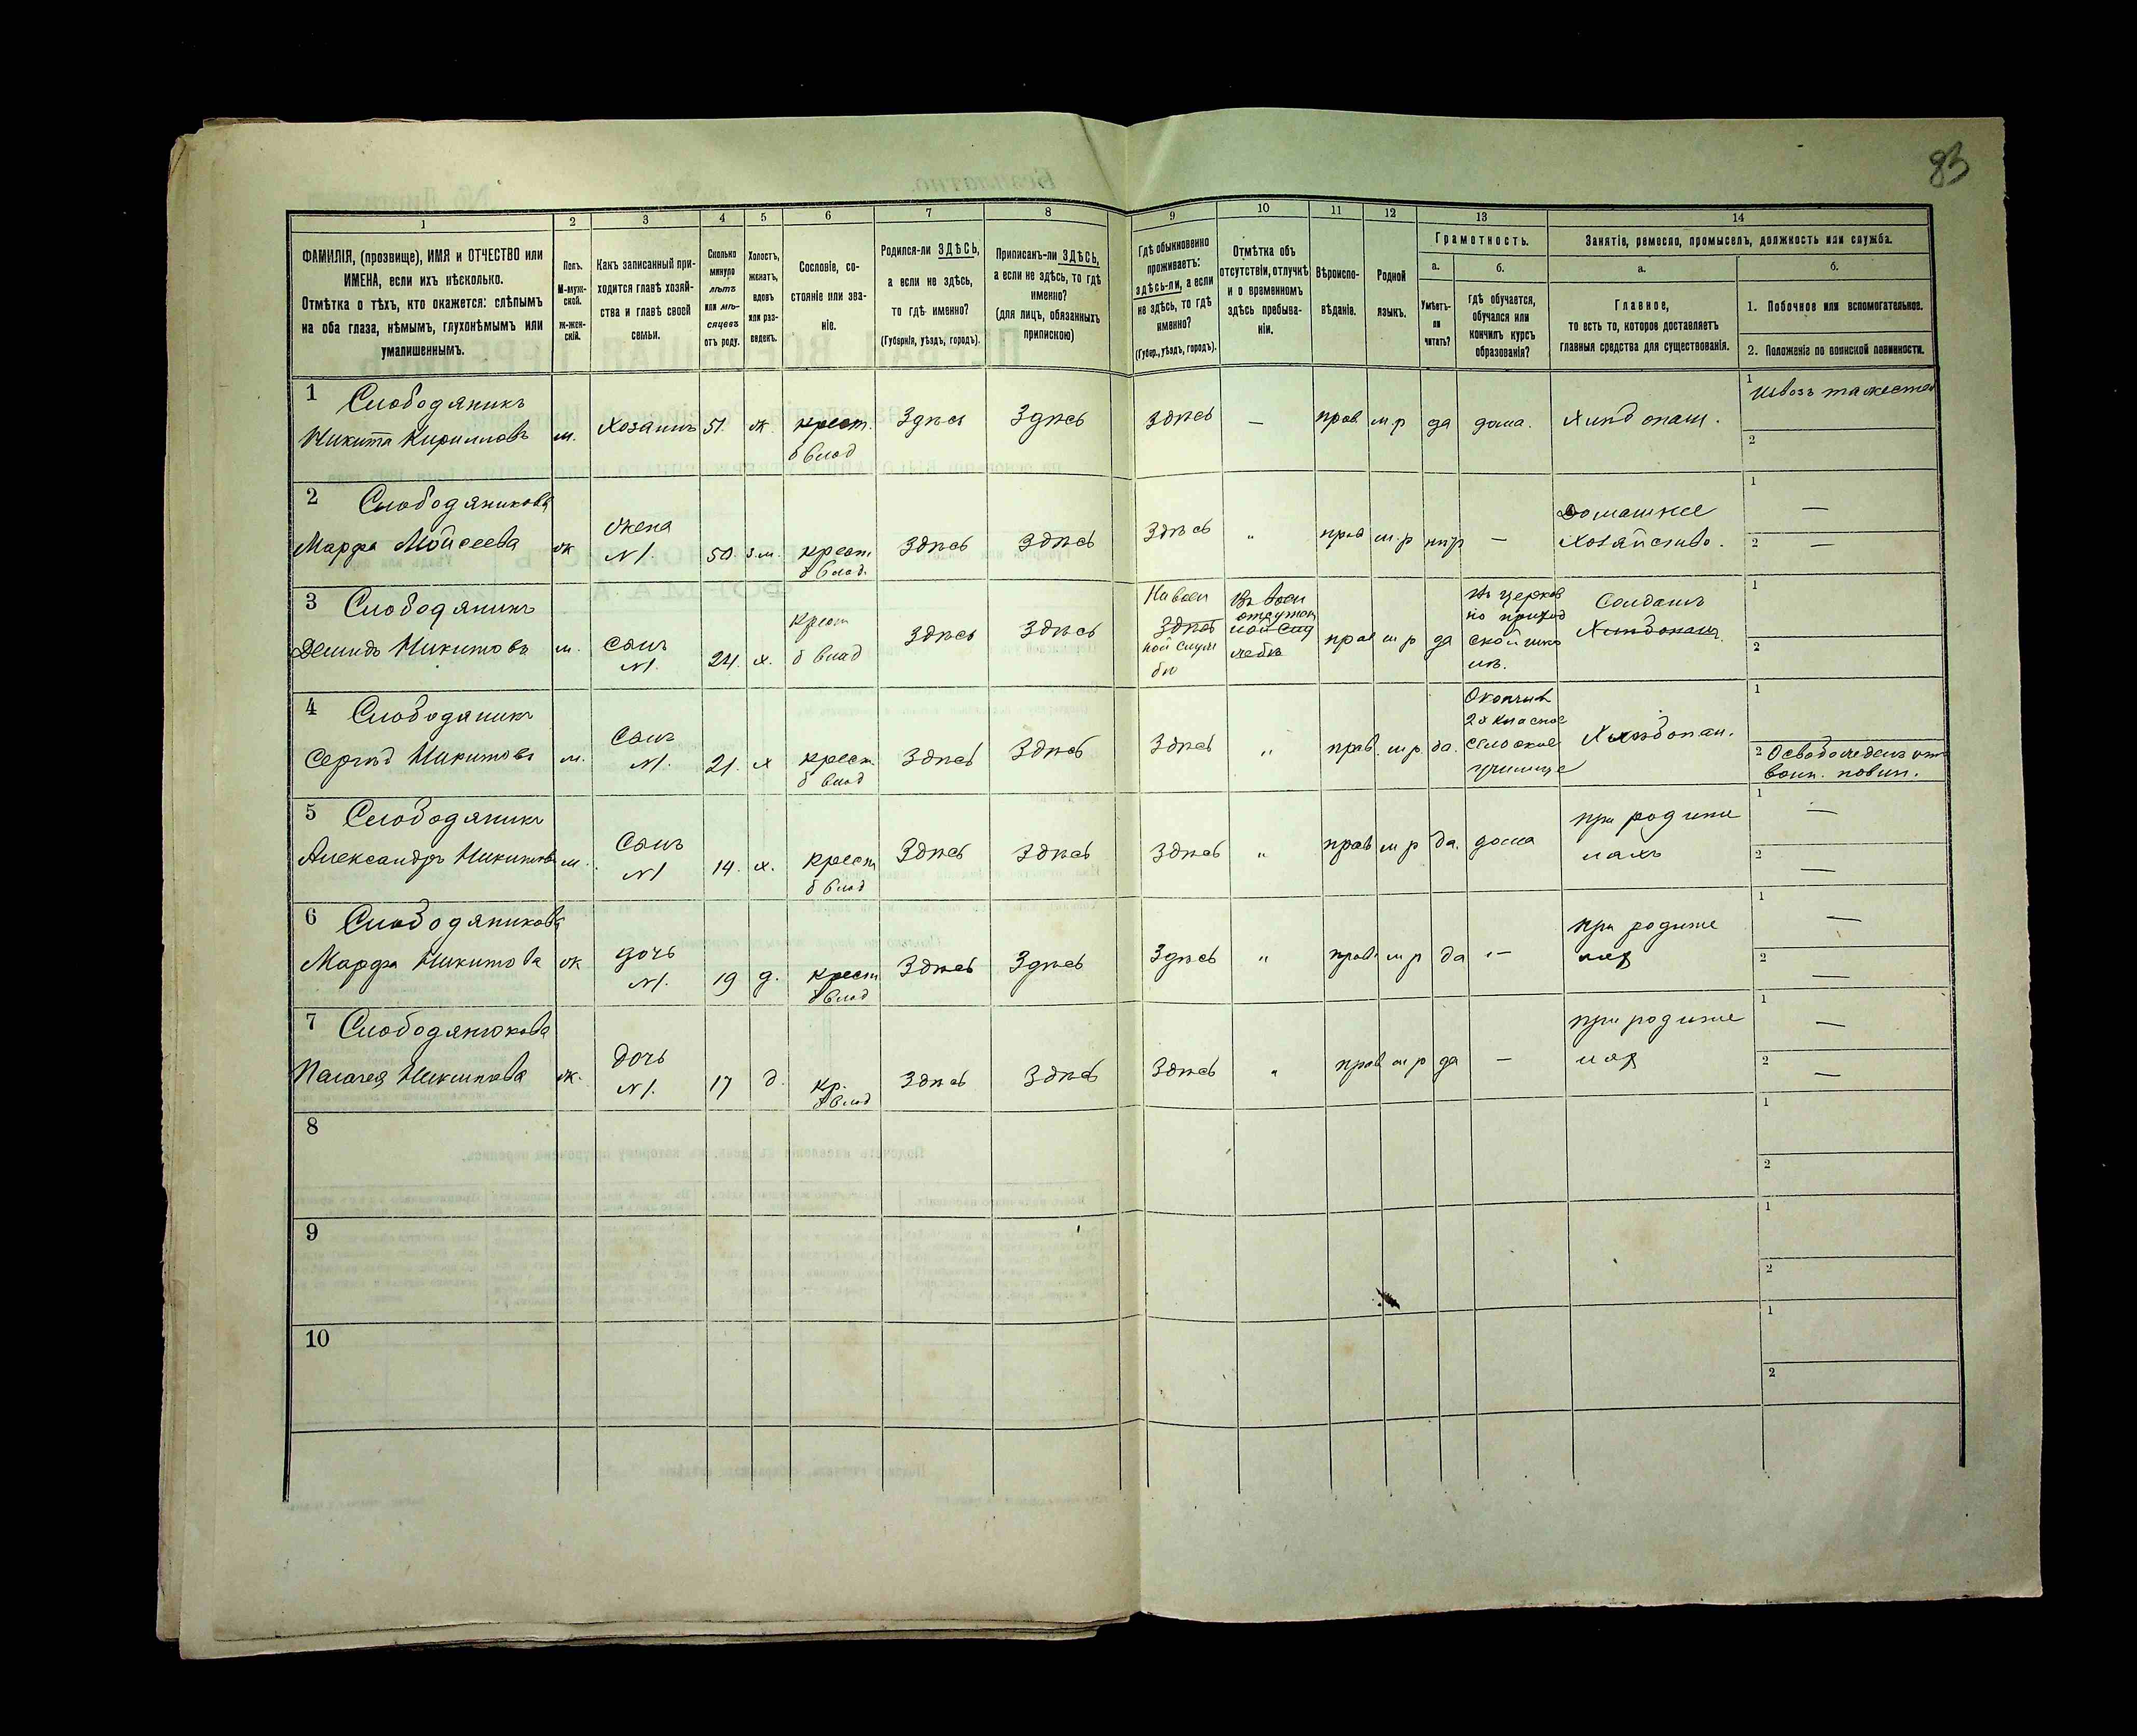 83
1 2 3 4 5 6 7 8 9 10 11 12 13 14
ФАМИЛІЯ, (прозвище), ИМЯ и ОТЧЕСТВО или
ИМЕНА, если ихъ нѣсколько.
Отмѣтка о тѣхъ, кто окажется: слѣпымъ
на оба глаза, нѣмымъ, глухонѣмымъ или
умалишеннымъ.
Полъ.
М-муж-
ской.
Ж-жен-
скій.
Какъ записанный при-
ходится главѣ хозяй-
ства и главѣ своей
семьи.
Сколько
минуло
лѣтъ
или мѣ-
сяцевъ
отъ роду.
Холостъ,
женатъ,
вдовъ
или раз-
веденъ.
Сословіе, со-
стояніе или зва-
ніе.
Родился-ли ЗДѢСЬ,
а если не здѣсь,
то гдѣ именно?
(Губернія, уѣздъ, городъ).
Приписанъ-ли ЗДѢСЬ,
а если не здѣсь, то гдѣ
именно?
(для лицъ, обязанныхъ
припискою)
Гдѣ обыкновенно
проживаетъ:
здѣсь-ли, а если
не здѣсь, то гдѣ
именно?
(Губер., уѣздъ, городъ).
Отмѣтка объ
отсутствіи, отлучкѣ
и о временномъ
здѣсь пребыва-
ніи.
Вѣроиспо-
вѣданіе.
Родной
языкъ.
Грамотность.
а.
Умѣетъ-
ли
читать?
б.
гдѣ обучается,
обучался или
кончилъ курсъ
образованія?
Занятіе, ремесло, промыселъ, должность или служба.
а.
Главное,
то есть то, которое доставляетъ
главныя средства для существованія.
б.
1. Побочное или вспомогательное.
2. Положеніе по воинской повинности.
1 Слободяникъ
Никита Кирилловъ м. Хозаинъ 51. ж. крест.
б влад
Здѣсь Здѣсь Здѣсь — прав м р да дома. Хлѣбопаш.
1
2
2 Слободяникова
Марфа Мойсеева ж
жена
№1. 50. з.м. крест
б влад.
Здѣсь Здѣсь Здѣсь „ прав м.р —
Домашнее
Хозяйство.
1 —
2 —
3 Слободяникъ
Демидъ Никитовъ м.
Сынъ
№1. 24. х.
Крест
б влад
Здѣсь Здѣсь
На воен
Здѣсь
ной служ
бѣ
Въ воен
прав м р да
Въ церков
но приход
ской шко
лѣ.
Солдатъ
Хлѣбопаш.
1
2
4 Слободяникъ
Сергѣй Никитовъ м.
Сынъ
№1. 21. х крест.
б влад
Здѣсь Здѣсь Здѣсь „ прав. м.р. да.
Окончив
2х класное
сельское
училище
Хлѣбопаш.
1
2 Освобожденъ от
воин. повин.
5 Слободяникъ
Александръ Никитовъ м.
Сынъ
№1 14. х. крест
б влад
Здѣсь Здѣсь Здѣсь „ прав м р да. дома
при родите
ляхъ
1 —
2 —
6 Слободяникова
Марфа Никитова ж
дочь
№1. 19 д. крест
б влад
Здѣсь Здѣсь Здѣсь „ прав. м р да —
при родите
лях
1 —
2 —
7 Слободянюкова
Палагея Никитова ж.
Дочь
№1. 17 д. кр.
б влад
Здѣсь Здѣсь Здѣсь „ прав м р да —
при родите
лях
1 —
2 —
8
1
2
9
1
2
10
1
2